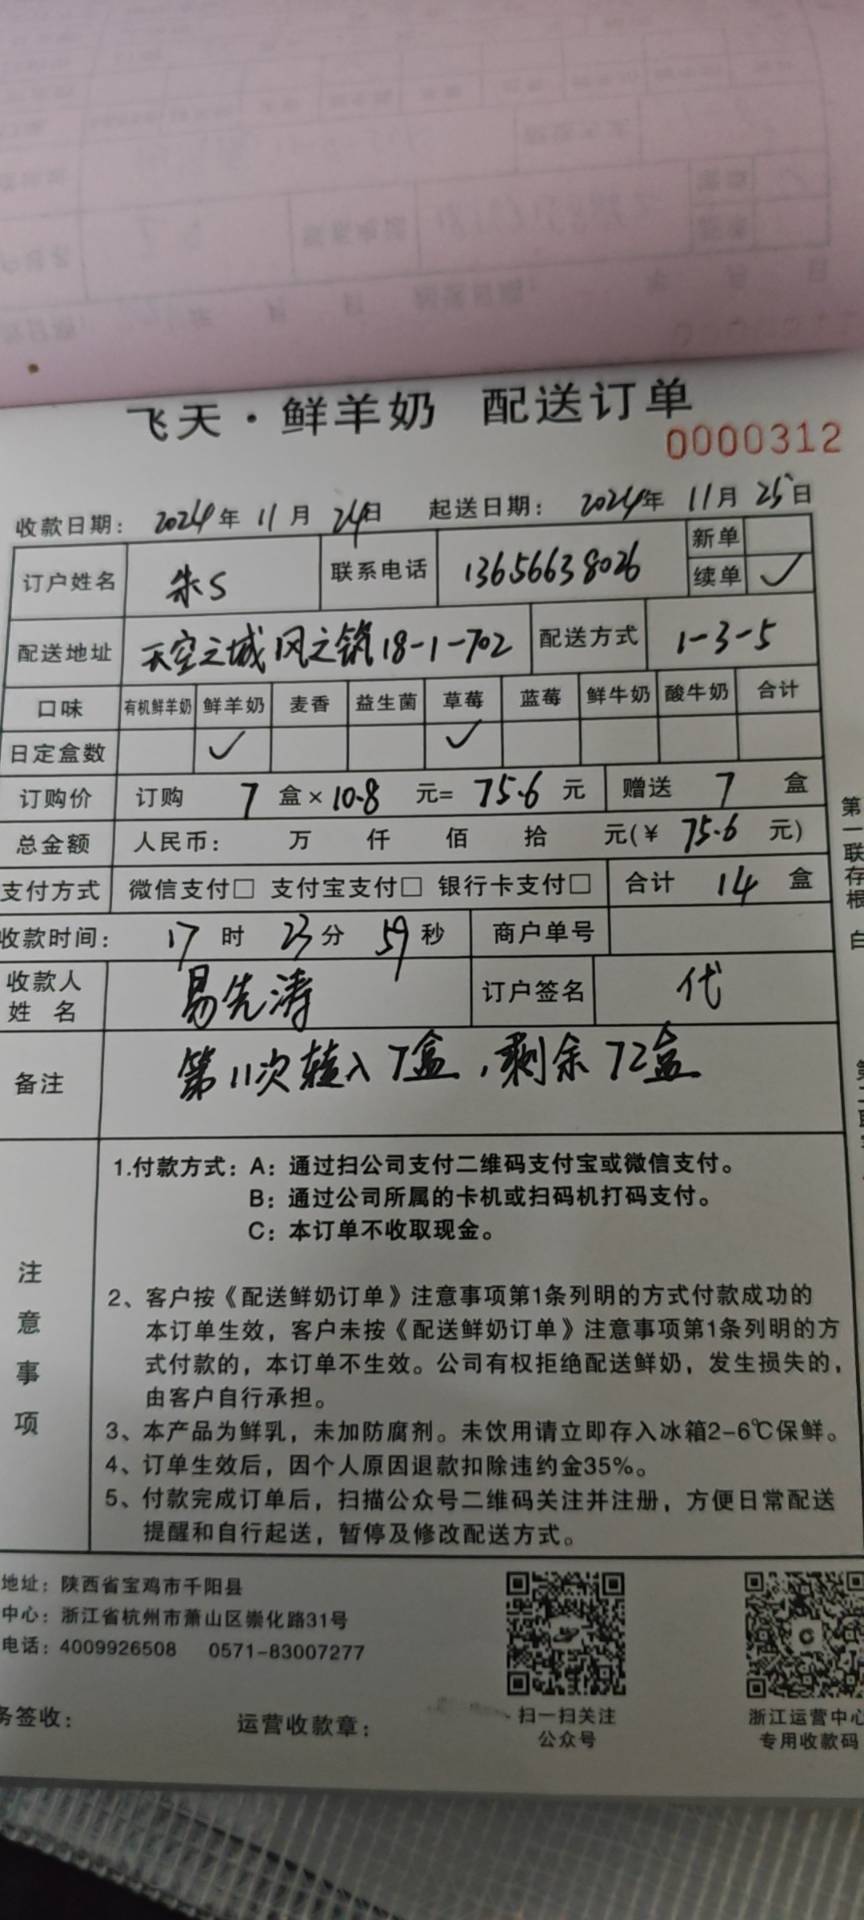 飞天·鲜羊奶 配送订单
0000312
收款日期: 2024年 11月 24日 起送日期: 2024年 11月 25日
订户姓名 朱S 联系电话 13656638026 新单
续单 ✓
配送地址 天空之城风之筑18-1-702 配送方式 1-3-5
口味 有机鲜羊奶 鲜羊奶 麦香 益生菌 草莓 蓝莓 鲜牛奶 酸牛奶 合计
日定盒数 ✓ ✓
订购价 订购 7 盒×10.8 元= 75.6 元 赠送 7 盒
总金额 人民币: 万 仟 佰 拾 元(¥ 75.6 元)
支付方式 微信支付□ 支付宝支付□ 银行卡支付□ 合计 14 盒
收款时间: 17 时 23分 59秒 商户单号
收款人
姓 名 易先涛 订户签名 代
备注 第11次转入7盒,剩余72盒
注意事项
1.付款方式: A: 通过扫公司支付二维码支付宝或微信支付。
B: 通过公司所属的卡机或扫码机打码支付。
C: 本订单不收取现金。
2、客户按《配送鲜奶订单》注意事项第1条列明的方式付款成功的
本订单生效,客户未按《配送鲜奶订单》注意事项第1条列明的方
式付款的,本订单不生效。公司有权拒绝配送鲜奶,发生损失的,
由客户自行承担。
3、本产品为鲜乳,未加防腐剂。未饮用请立即存入冰箱2-6℃保鲜。
4、订单生效后,因个人原因退款扣除违约金35%。
5、付款完成订单后,扫描公众号二维码关注并注册,方便日常配送
提醒和自行起送,暂停及修改配送方式。
地址: 陕西省宝鸡市千阳县
中心: 浙江省杭州市萧山区崇化路31号
电话: 4009926508 0571-83007277
务签收: 运营收款章:
扫一扫关注
公众号
浙江运营中心
专用收款码
第一联存根 白